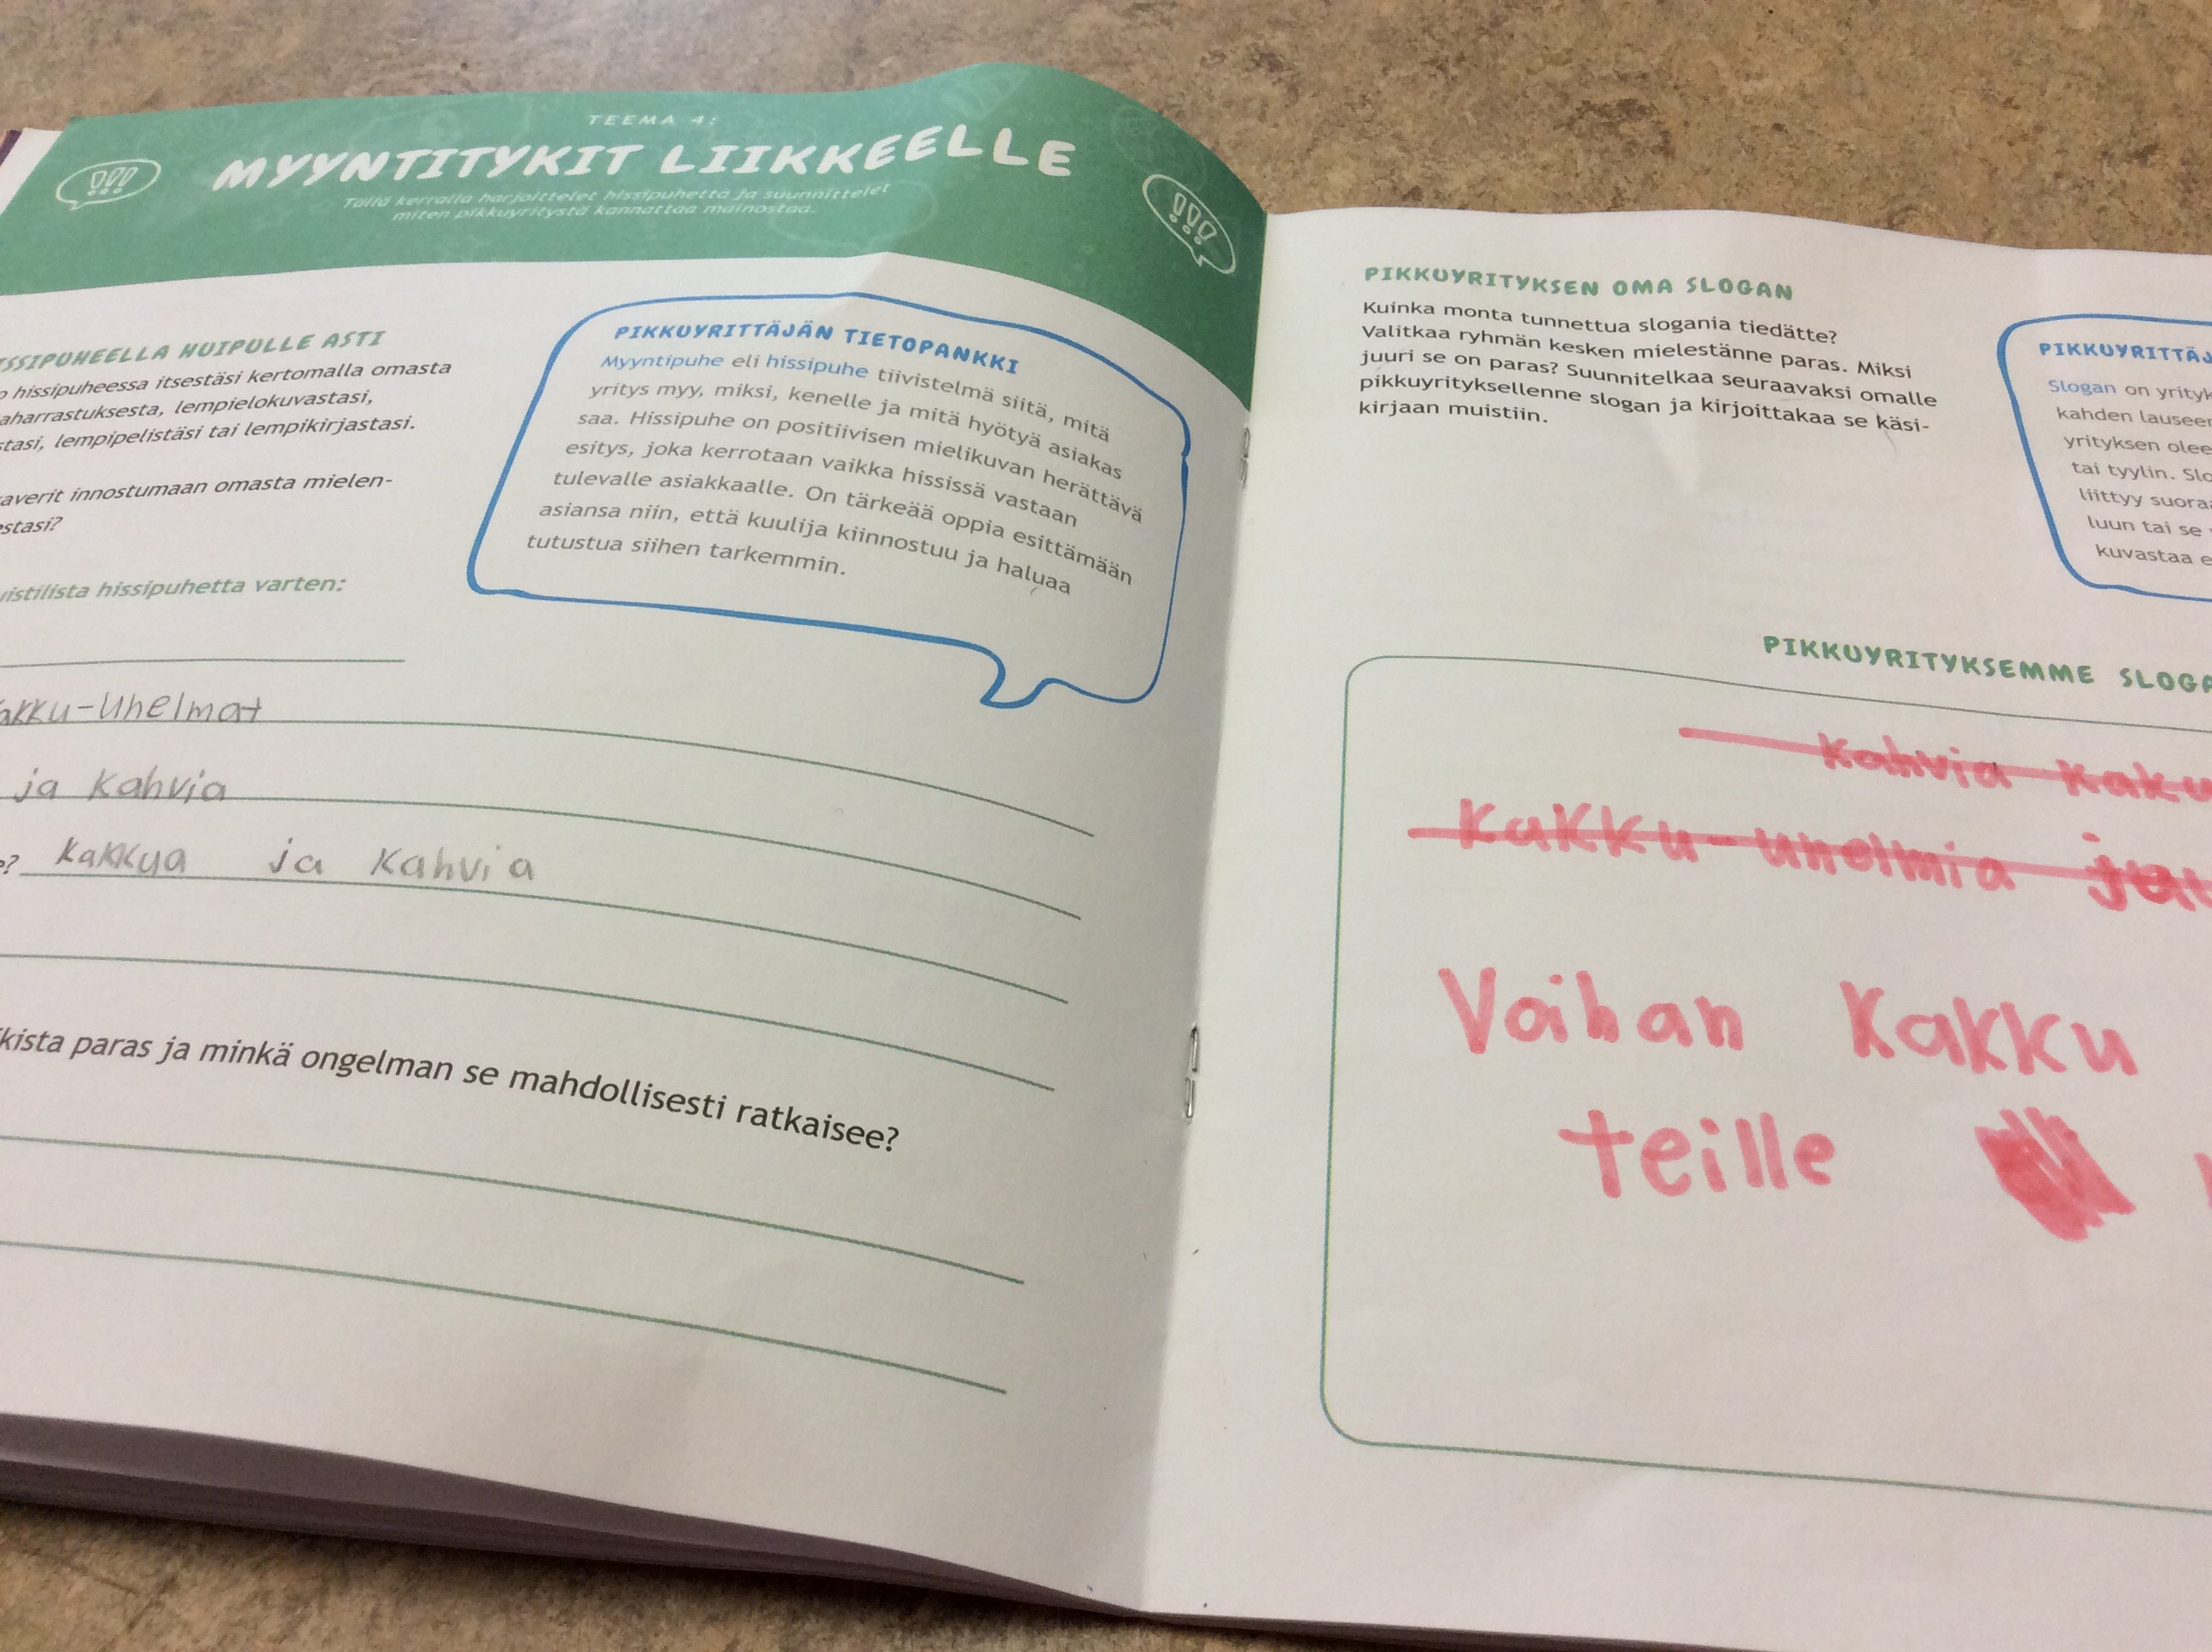 TEEMA 4:
MYYNTITYKIT LIIKKEELLE
Tällä kerralla harjoittelet hissipuhetta ja suunnittelet
miten pikkuyritystä kannattaa mainostaa.
HUIPULLE ASTI
hissipuheessa itsestäsi kertomalla omasta
lempielokuvastasi,
lempipelistäsi tai lempikirjastasi.
innostumaan omasta mielen-
hissipuhetta varten:
Kakku-Unelmat
ja Kahvia
Kakkua ja Kahvia
paras ja minkä ongelman se mahdollisesti ratkaisee?
PIKKUYRITTÄJÄN TIETOPANKKI
Myyntipuhe eli hissipuhe tiivistelmä siitä, mitä
yritys myy, miksi, kenelle ja mitä hyötyä asiakas
saa. Hissipuhe on positiivisen mielikuvan herättävä
esitys, joka kerrotaan vaikka hississä vastaan
tulevalle asiakkaalle. On tärkeää oppia esittämään
asiansa niin, että kuulija kiinnostuu ja haluaa
tutustua siihen tarkemmin.
PIKKUYRITYKSEN OMA SLOGAN
Kuinka monta tunnettua slogania tiedätte?
Valitkaa ryhmän kesken mielestänne paras. Miksi
juuri se on paras? Suunnitelkaa seuraavaksi omalle
pikkuyrityksellenne slogan ja kirjoittakaa se käsi-
kirjaan muistiin.
Slogan on
kahden
yrityksen
tai tyylin.
liittyy
luun tai se
kuvastaa
PIKKUYRITYKSEMME
Kahvia
Kakku-Unelmia
Voihan Kakku
teille